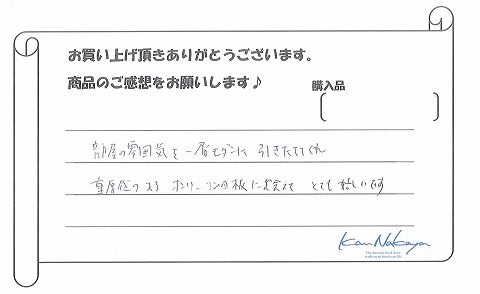 お買い上げ頂きありがとうございます。
商品のご感想をお願いします♪
購入品
部屋の雰囲気を一層モダンに引きたててくれ
重厚感のある オンリーワンの板に出会えて とても嬉しいです
Kan Nakaya